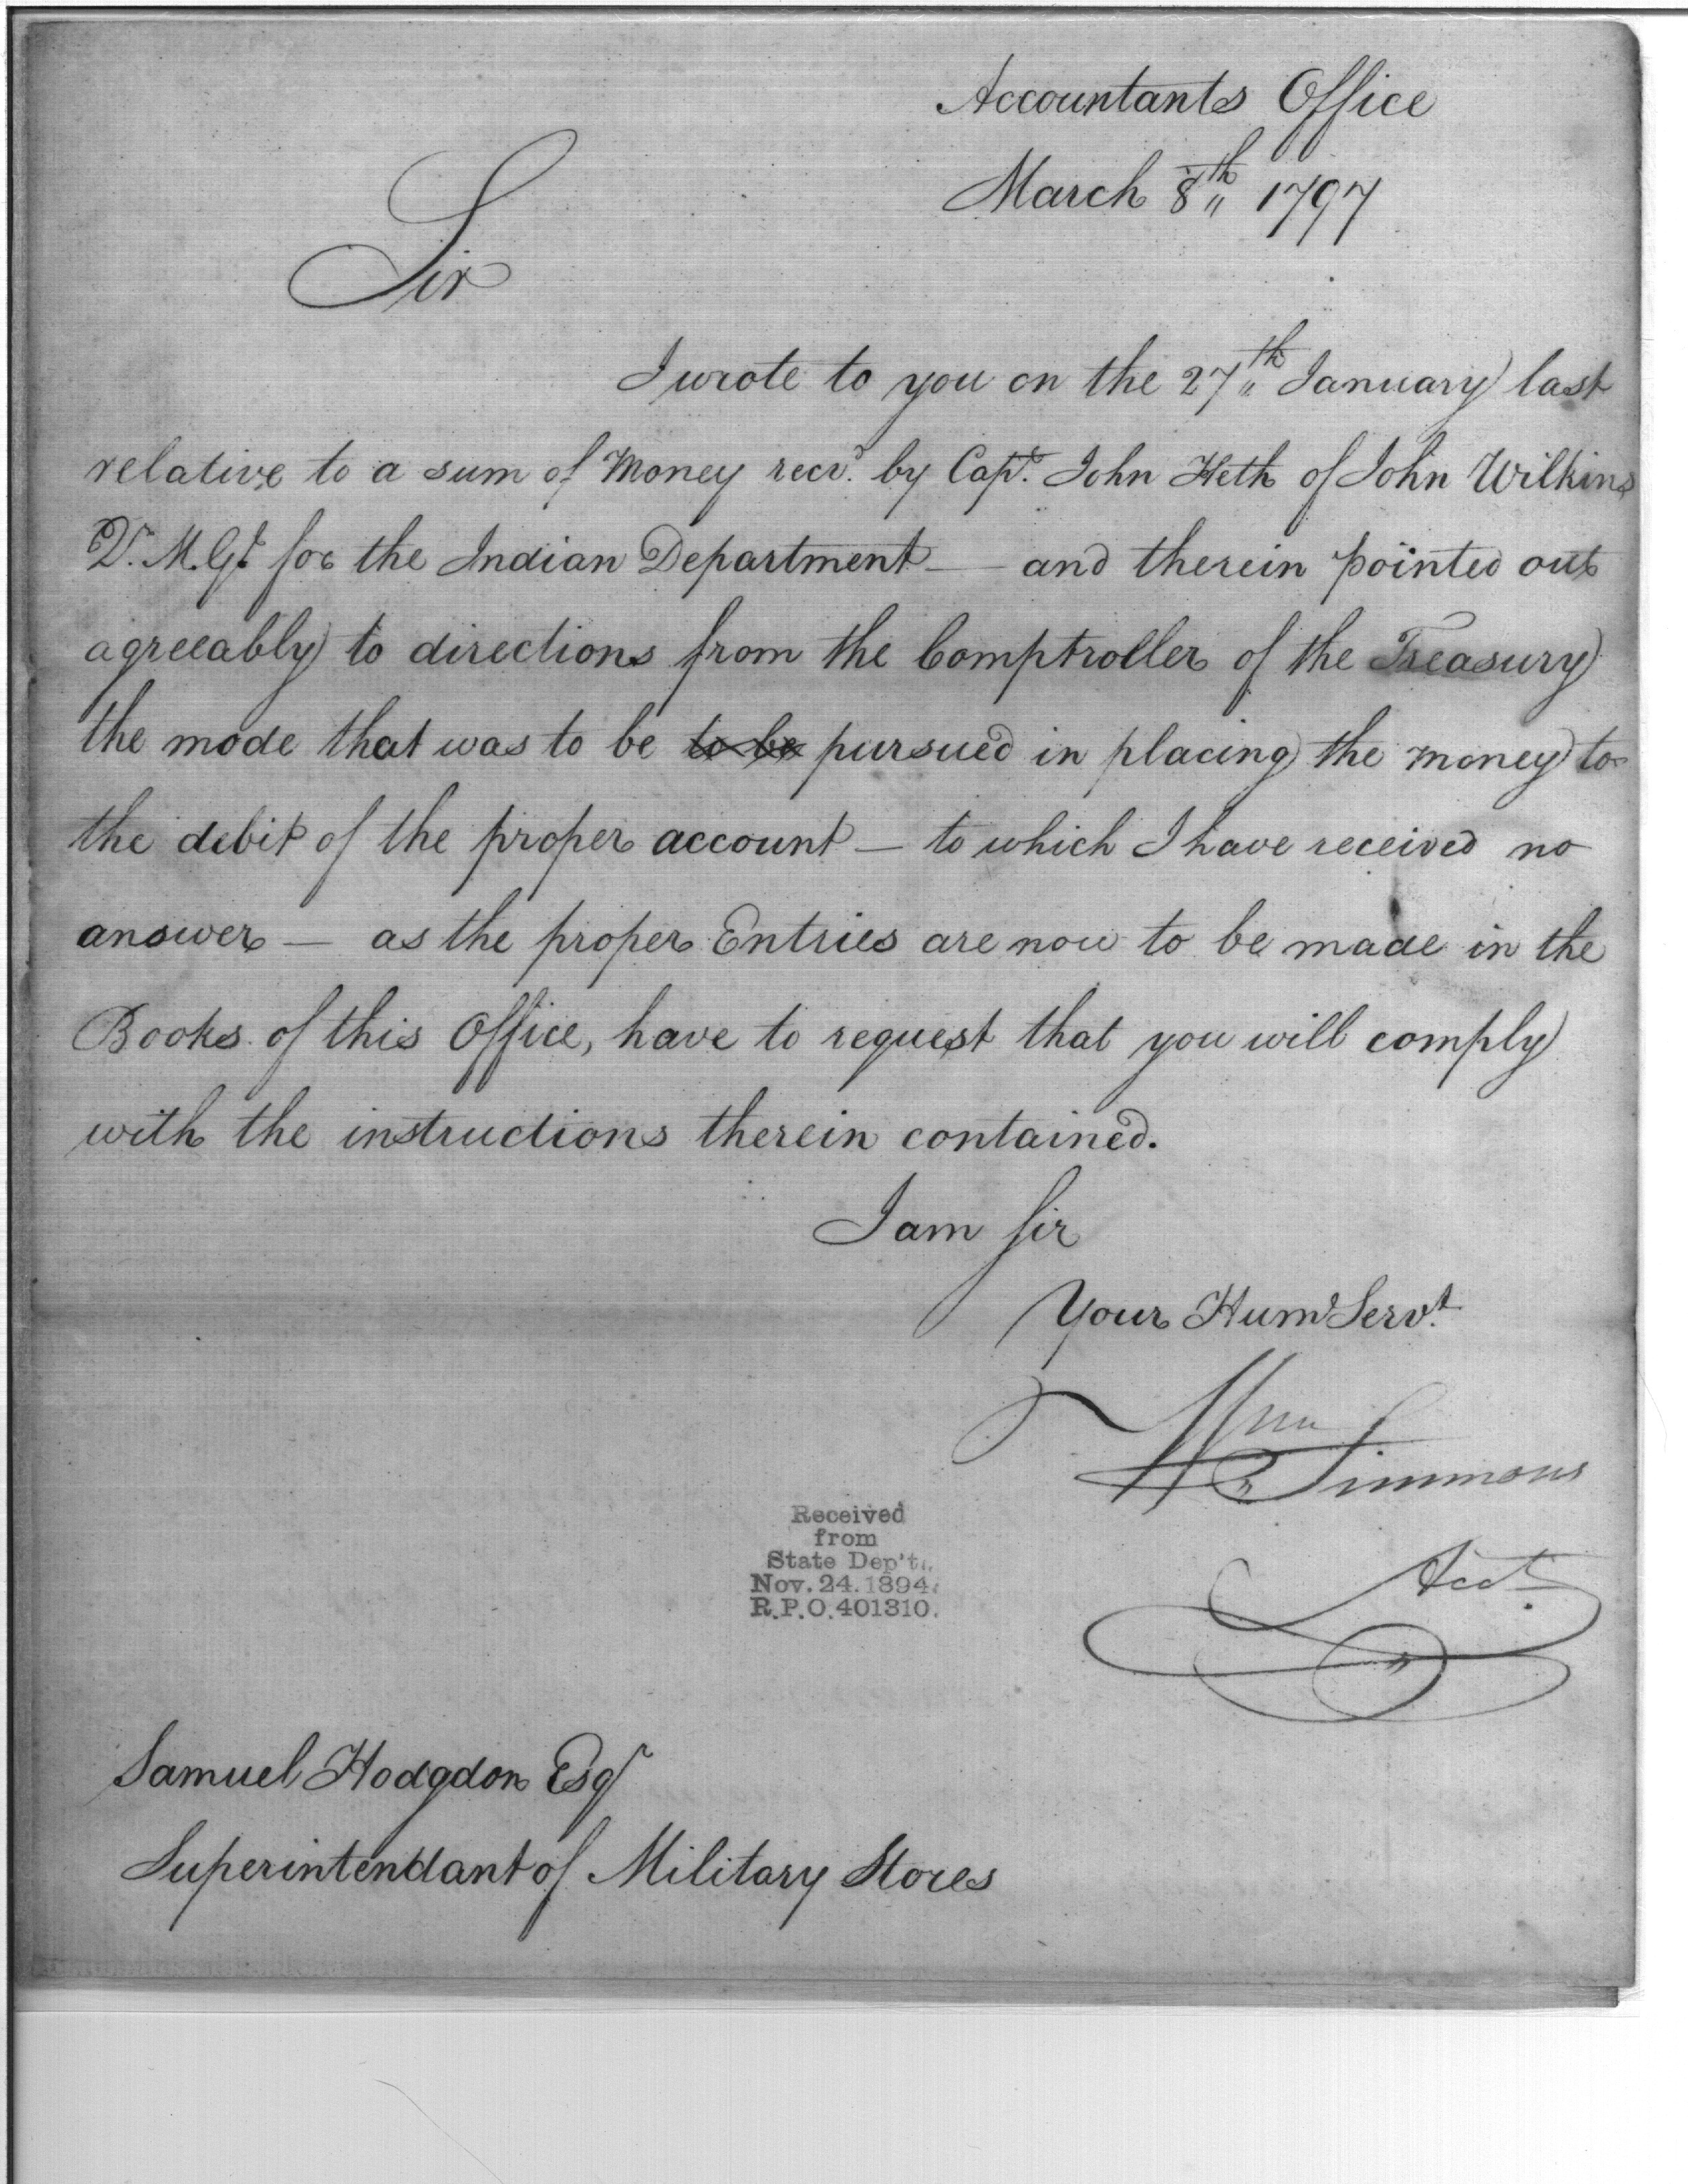 Accountants Office
March 8th 1797
Sir
I wrote to you on the 27th January last
relative to a sum of Money recd. by Capt. John Heth of John Wilkins
Q. M. Gl. for the Indian Department — and therein pointed out
agreeably to directions from the Comptroller of the Treasury
the mode that was to be to be pursued in placing the money to
the debit of the proper account — to which I have received no
answer — as the proper Entries are now to be made in the
Books of this Office, have to request that you will comply
with the instructions therein contained.
I am Sir
Your Hume Servt.
Wm Simmons
Acct.
Received
from
State Dep't.
Nov. 24. 1894.
R.P.O. 401310.
Samuel Hodgdon Esqr
Superintendant of Military Stores